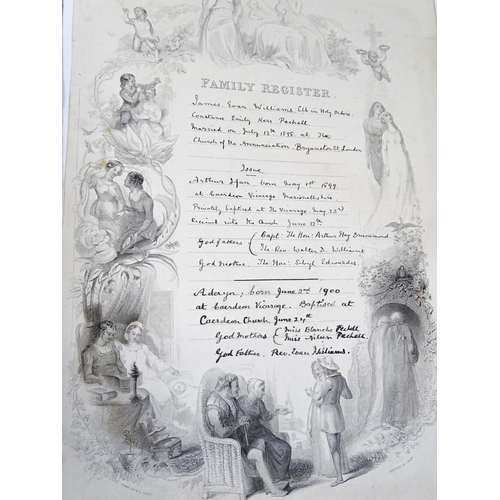 FAMILY REGISTER.
James Evan Williams Clk in Holy Orders
Constance Emily Kers Pechell
Married on July 12th 1898 at the
Church of the Annunciation. Bryanston St. London
Issue.
Arthur Ifan; born May 1st 1899
at Caerdeon Vicarage Merionethshire.
Privately baptised at the Vicarage May 22d
Received into the Church June 13th
Godfathers { Capt: The Hon: Arthur Hay Drummond.
The Rev. Walter D. Williams
Godmother. The Hon: Sibyl Edwardes
Aderyn; born June 2nd 1900
at Caerdeon Vicarage. Baptised at
Caerdeon Church, June 24th
God Mothers { Miss Blanche Pechell
Miss Pechell.
God Father. Rev. Evan Williams.